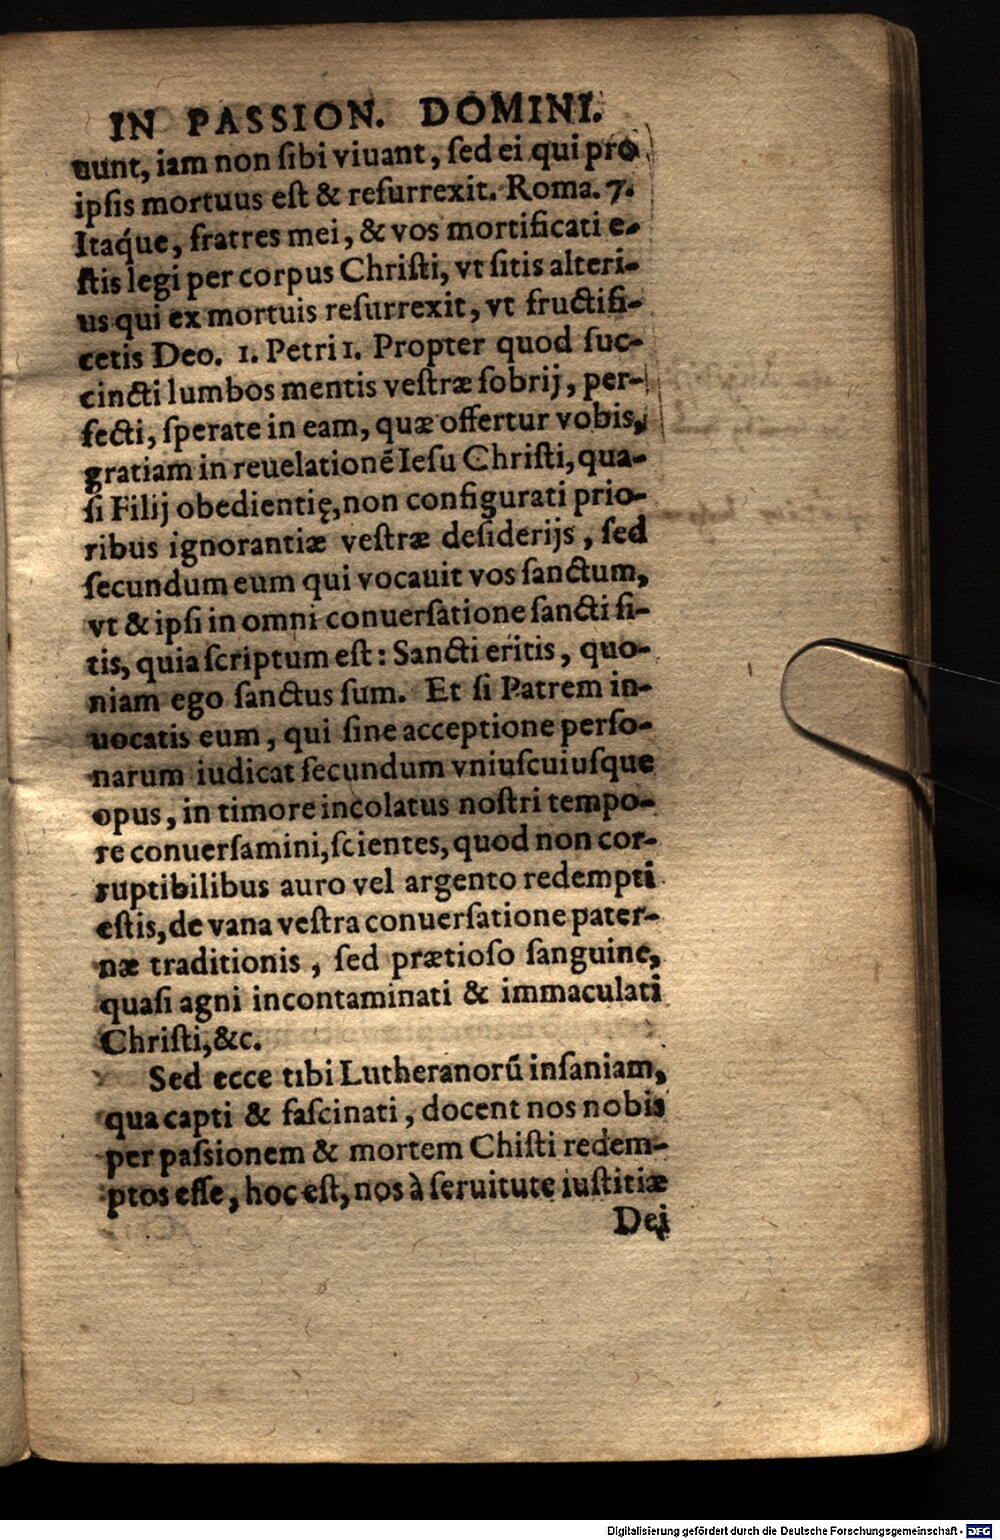 IN PASSION. DOMINI.
uunt, iam non ſibi viuant, ſed ei qui pro
ipſis mortuus eſt & reſurrexit. Roma. 7.
Itaq́ue, fratres mei, & vos mortificati e-
ſtis legi per corpus Chriſti, vt ſitis alteri-
us qui ex mortuis reſurrexit, vt fructifi-
cetis Deo. 1. Petri 1. Propter quod ſuc-
cincti lumbos mentis veſtræ ſobrij, per-
fecti, ſperate in eam, quæ offertur vobis,
gratiam in reuelationē Ieſu Chriſti, qua-
ſi Filij obedientię, non configurati prio-
ribus ignorantiæ veſtræ deſiderijs, ſed
ſecundum eum qui vocauit vos ſanctum,
vt & ipſi in omni conuerſatione ſancti ſi-
tis, quia ſcriptum eſt: Sancti eritis, quo-
niam ego ſanctus ſum. Et ſi Patrem in-
uocatis eum, qui ſine acceptione perſo-
narum iudicat ſecundum vniuſcuiuſque
opus, in timore incolatus noſtri tempo-
re conuerſamini, ſcientes, quod non cor-
ruptibilibus auro vel argento redempti
eſtis, de vana veſtra conuerſatione pater-
næ traditionis, ſed prætioſo ſanguine,
quaſi agni incontaminati & immaculati
Chriſti, &c.
Sed ecce tibi Lutheranorū inſaniam,
qua capti & faſcinati, docent nos nobis
per paſsionem & mortem Chiſti redem-
ptos eſſe, hoc eſt, nos à ſeruitute iuſtitiæ
Dei
Digitalisierung gefördert durch die Deutsche Forschungsgemeinschaft - DFG